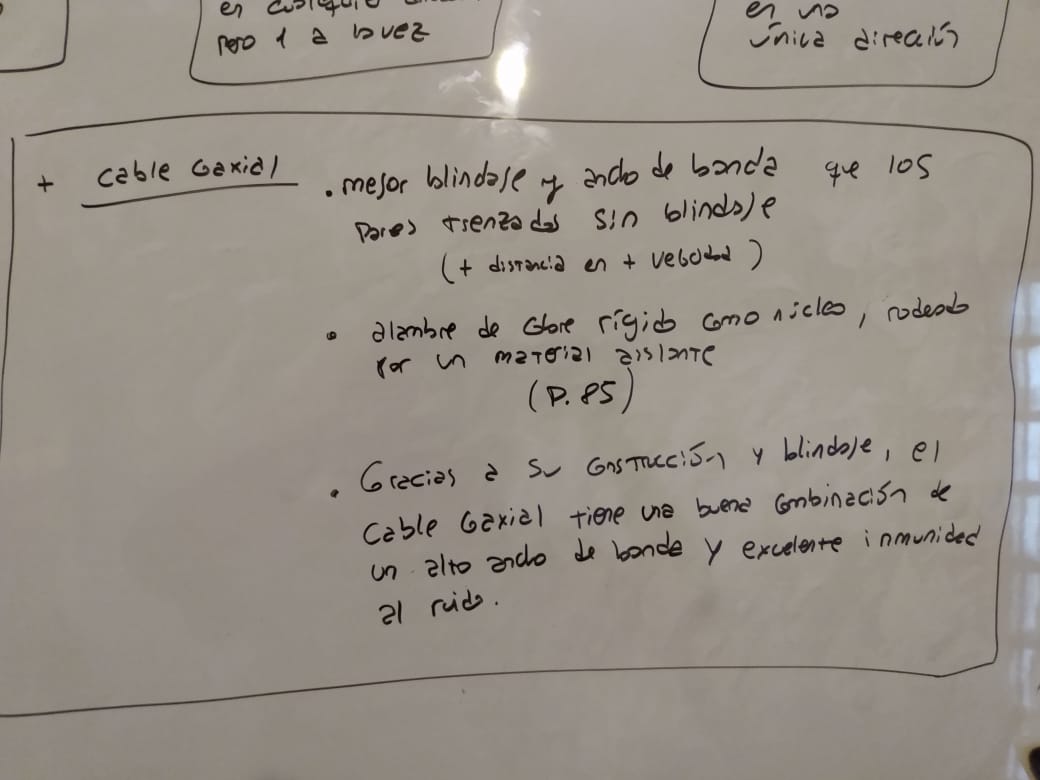 en cualquier
pero 1 a la vez
en una
única dirección
+ cable coaxial
. mejor blindaje y ancho de banda que los
pares trenzados sin blindaje
(+ distancia en + velocidad)
• alambre de cobre rígido como núcleo, rodeado
por un material aislante
(P. 85)
. Gracias a su construcción y blindaje, el
cable coaxial tiene una buena combinación de
un alto ancho de banda y excelente inmunidad
al ruido.